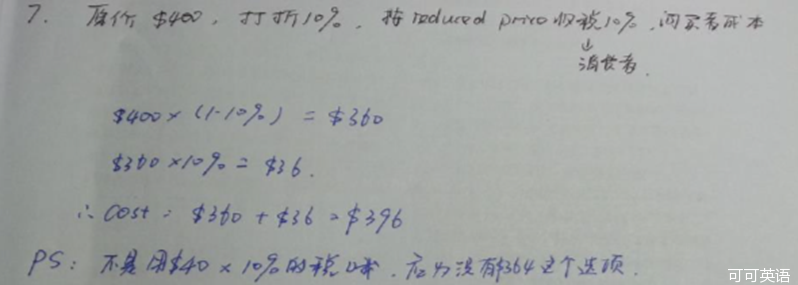 7. 原价 $400, 打折10%, 按 reduced price 收税10%, 问买者成本
↓
消费者.
$400 × (1-10%) = $360
$360 × 10% = $36.
∴ Cost = $360 + $36 = $396
PS: 不是用$40 × 10% 的税哦. 应为没有$364这个选项.
可可英语